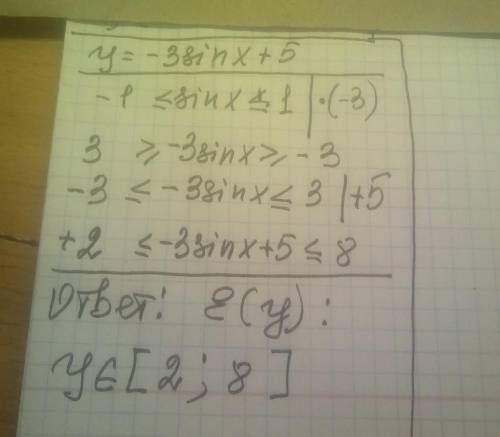 y = -3sinx+5
-1 ≤ sinx ≤ 1 | ·(-3)
3 ≥ -3sinx ≥ -3
-3 ≤ -3sinx ≤ 3 | +5
+2 ≤ -3sinx+5 ≤ 8
Ответ: E(y):
y∈[2; 8]